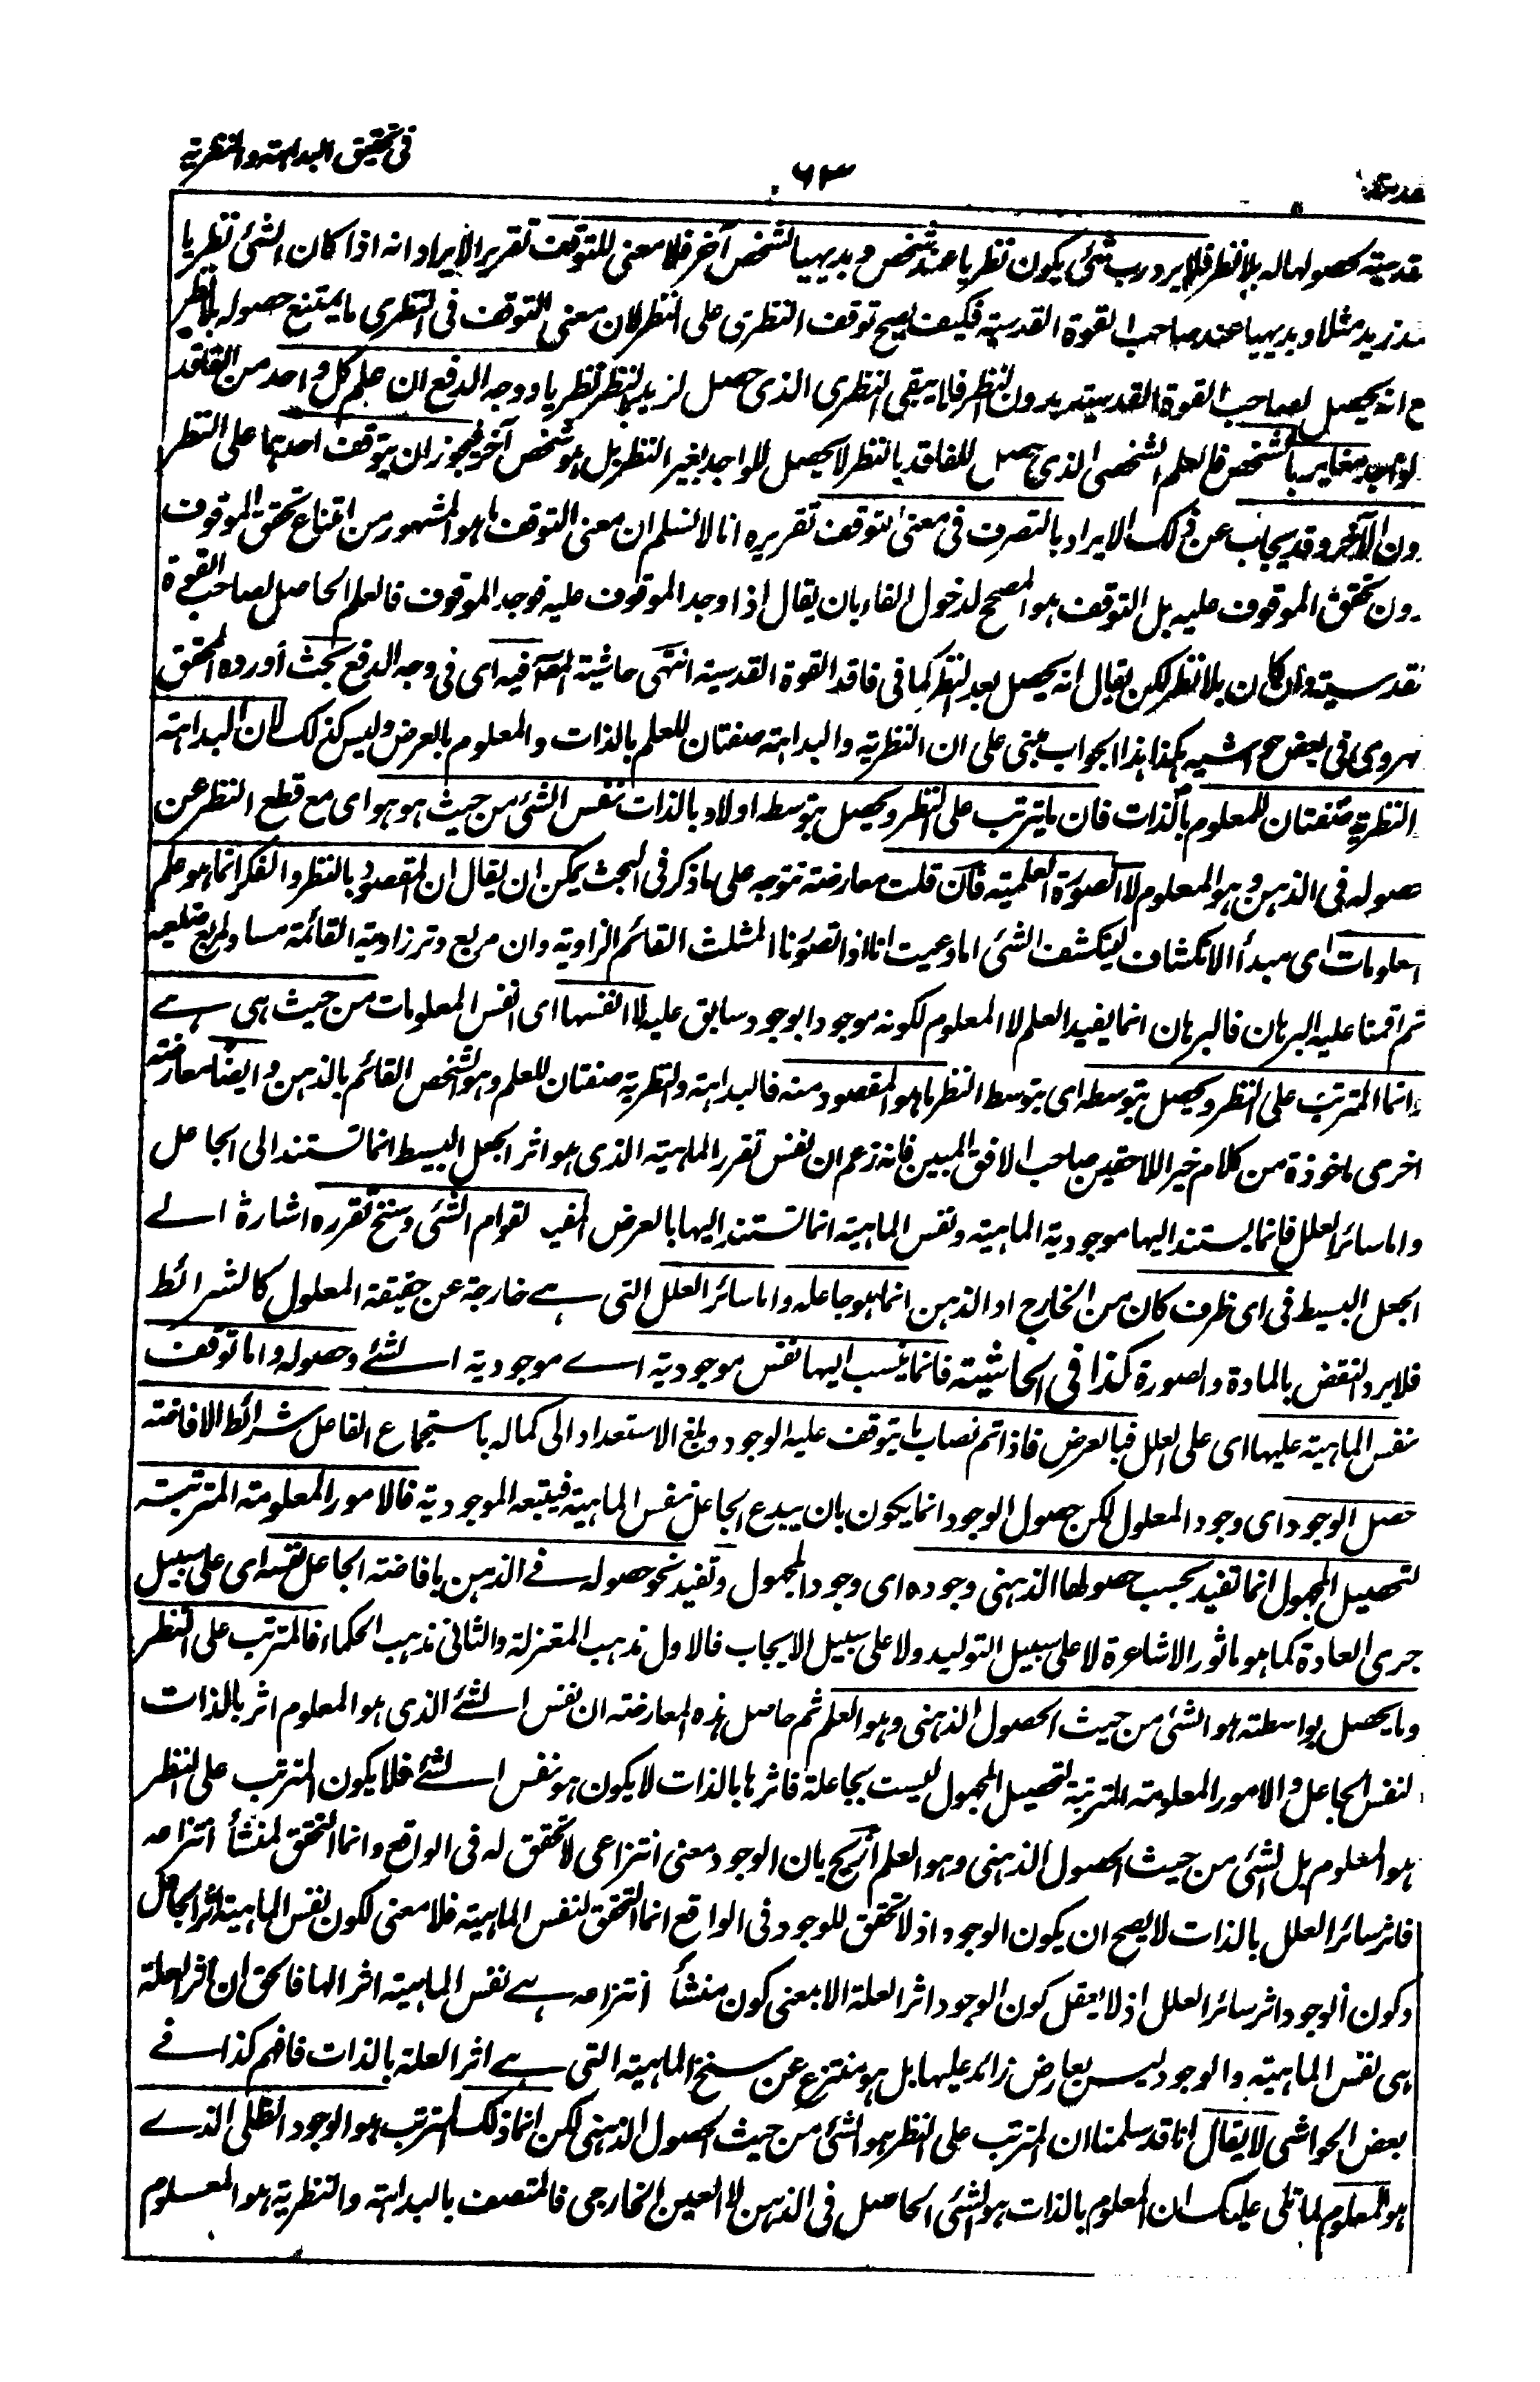 في تحقيق البداهة والنظرية
٦٣
قدسية بحصولها له بلا نظر فلا يرد رب شئ يكون نظريا عند شخص وبديهيا لشخص آخر فلا معنى للتوقف تقرير الايراد انه اذا كان الشئ نظريا
زيد مثلا وبديهيا عند صاحب القوة القدسية فكيف يصح توقف النظرى على النظر لان معنى التوقف فى النظرى ما يمتنع حصوله بلا نظر
ع انه يحصل لصاحب القوة القدسية بدون النظر فلا يبقى النظرى الذى حصل لزيد بالنظر نظريا ووجه الدفع ان علم كل واحد من الفاقد
لواجد مغاير بالشخص فالعلم الشخصى الذى حصل للفاقد بالنظر لا يحصل للواجد بغير النظر بل هو شخص آخر فيجوز ان يتوقف احدهما على النظر
ون الآخر وقد يجاب عن ذلك الايراد بالتصرف فى معنى التوقف تقريره انا لا نسلم ان معنى التوقف ما هو المشهور من امتناع تحقق الموقوف
ون تحقق الموقوف عليه بل التوقف هو المصحح لدخول الفاء بان يقال اذا وجد الموقوف عليه فوجد الموقوف فالعلم الحاصل لصاحب القوة
قدسية وان كان بلا نظر لكن يقال انه يحصل بعد النظر كما فى فاقد القوة القدسية انتهى حاشية فيه اى فى وجه الدفع بحث أورده المحقق
هروى فى بعض حواشيه هكذا هذا الجواب مبنى على ان النظرية والبداهة صفتان للعلم بالذات والمعلوم بالعرض وليس كذلك لان البداهة
النظرية صفتان للمعلوم بالذات فان ما يترتب على النظر ويحصل بتوسطه اولا وبالذات نفس الشئ من حيث هو هو اى مع قطع النظر عن
حصوله فى الذهن وهو المعلوم لا الصورة العلمية فان قلت معارضة تتوجه على ما ذكر فى البحث يمكن ان يقال ان المقصود بالنظر والفكر انما هو علم
المعلومات اى مبدأ الانكشاف لينكشف الشئ اما وعيت انا اذا تصورنا المثلث القائم الزاوية وان مربع وتر زاويته القائمة مساو لمربع ضلعيه
ثم اقمنا عليه البرهان فالبرهان انما يفيد العلم لا المعلوم لكونه موجودا بوجود سابق عليه لا انفسها اى انفس المعلومات من حيث هى هے
انما المترتب على النظر ويحصل بتوسطه اى بتوسط النظر ما هو المقصود منه فالبداهة والنظرية صفتان للعلم وهو الشخص القائم بالذهن وايضا معارضة
اخرى ماخوذة من كلام خير اللاحقين صاحب الافق المبين فانه زعم ان نفس تقرر الماهية الذى هو اثر الجعل البسيط انما تستند الى الجاعل
واما سائر العلل فانما يستند اليها موجودية الماهية ونفس الماهية انما تستند اليها بالعرض المفيد لقوام الشئ وسنخ تقرره اشارة الے
الجعل البسيط فى اى ظرف كان من الخارج او الذهن انما هو جاعله واما سائر العلل التى هے خارجة عن حقيقة المعلول كالشرائط
فلا يرد النقض بالمادة والصورة كذا فى الحاشية فانما ينسب اليها نفس موجودية اے موجودية الشئے وحصوله واما توقف
نفس الماهية عليها اى على العلل فبالعرض فاذا تم نصاب ما يتوقف عليه الوجود وبلغ الاستعداد الى كماله باستجماع الفاعل شرائط الافاضة
حصل الوجود اى وجود المعلول لكن حصول الوجود انما يكون بان يبدع الجاعل نفس الماهية فيتبعه الموجودية فالامور المعلومة المترتبة
لتحصيل المجهول انما تفيد بحسب حصولها الذهنى وجوده اى وجود المجهول وتفيد نحو حصوله فے الذهن بافاضة الجاعل نفسه اى على سبيل
جرى العادة كما هو ماثور الاشاعرة لا على سبيل التوليد ولا على سبيل الايجاب فالاول مذهب المعتزلة والثانى مذهب الحكماء فالمترتب على النظر
وما يحصل بواسطته هو الشئ من حيث الحصول الذهنى وهو العلم ثم حاصل هذه المعارضة ان نفس الشئے الذى هو المعلوم اثر بالذات
لنفس الجاعل والامور المعلومة المترتبة لتحصيل المجهول ليست بجاعلة فاثرها بالذات لا يكون هو نفس الشئے فلا يكون المترتب على النظر
هو المعلوم بل الشئ من حيث الحصول الذهنى وهو العلم بان الوجود معنى انتزاعى لا تحقق له فى الواقع وانما التحقق لمنشأ انتزاعه
فاثر سائر العلل بالذات لا يصح ان يكون الوجود اذ لا تحقق للوجود فى الواقع انما التحقق لنفس الماهية فلا معنى لكون نفس الماهية اثر الجاعل
وكون الوجود اثر سائر العلل اذ لا يعقل كون الوجود اثر العلة الا بمعنى كون منشأ انتزاعه هے نفس الماهية اثرا لها فالحق ان اثر العلة
هى نفس الماهية والوجود ليس بعارض زائد عليها بل هو منتزع عن سنخ الماهية التى هے اثر العلة بالذات فافهم كذا فے
بعض الحواشى لا يقال انا قد سلمنا ان المترتب على النظر هو الشئ من حيث الحصول الذهنى لكن انما ذلك المترتب هو الوجود الظلى الذے
هو المعلوم لما تلى عليك ان المعلوم بالذات هو الشئ الحاصل فى الذهن لا العين الخارجى فالمتصف بالبداهة والنظرية هو المعلوم